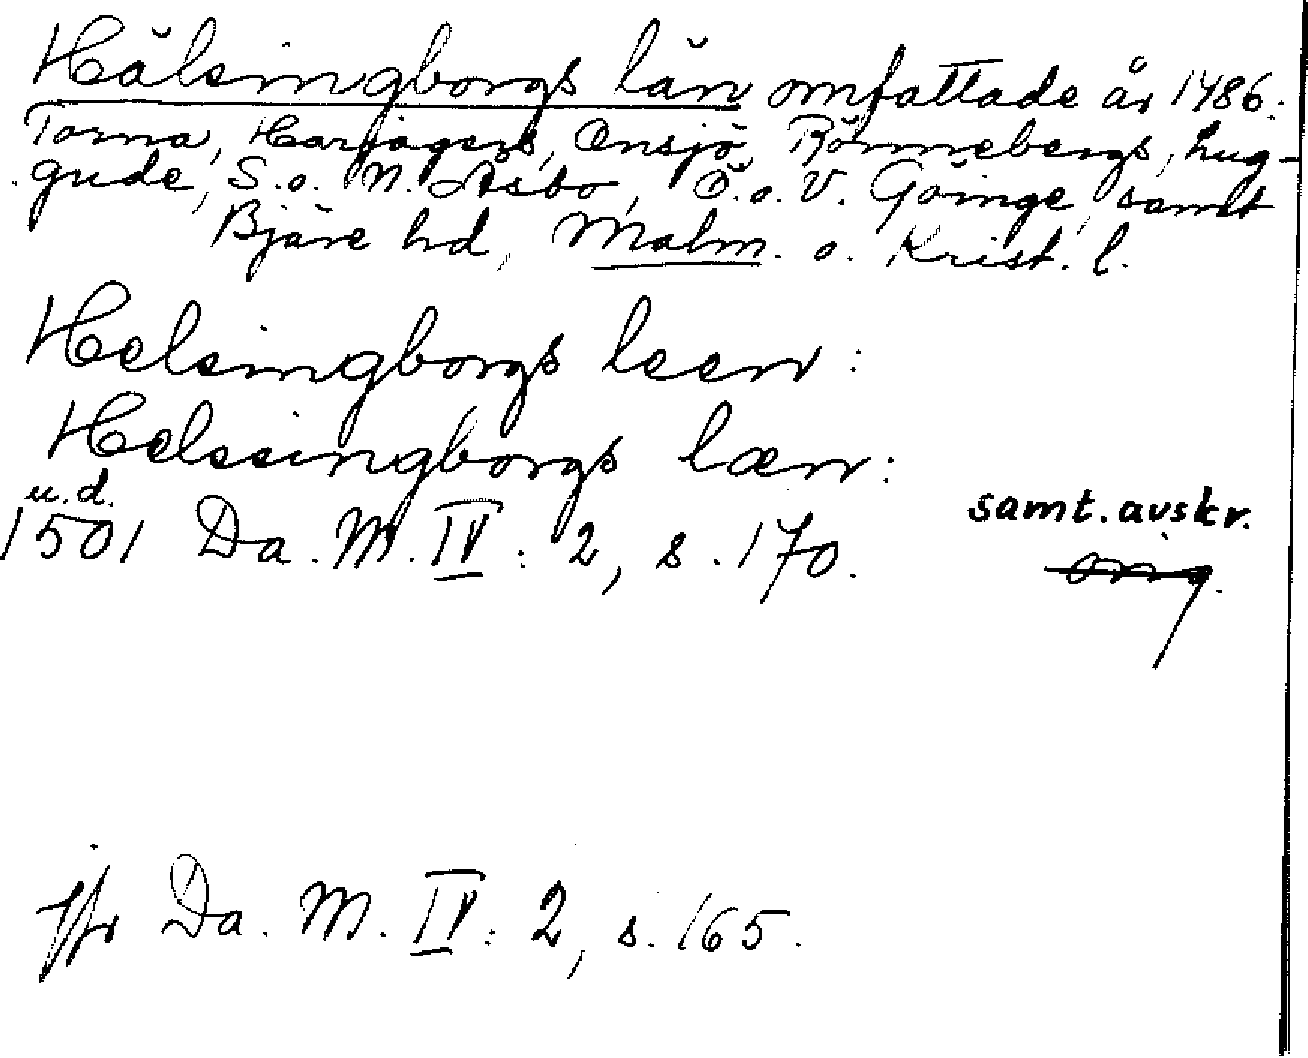 Hälsingborgs län omfattade år 1486.
Torna, Harjagers, Onsjö, Rönnebergs, Lug-
gude, S. o. N. Åsbo, Ö. o. V. Göinge, samt
Bjäre hd, Malm. o. Krist. l.
Helsingborgs leen:
Helssingborgs læn:
u.d.
1501 Da. M. IV: 2, s. 170.
samt. avskr.
orig.
jfr Da. M. IV: 2, s. 165.